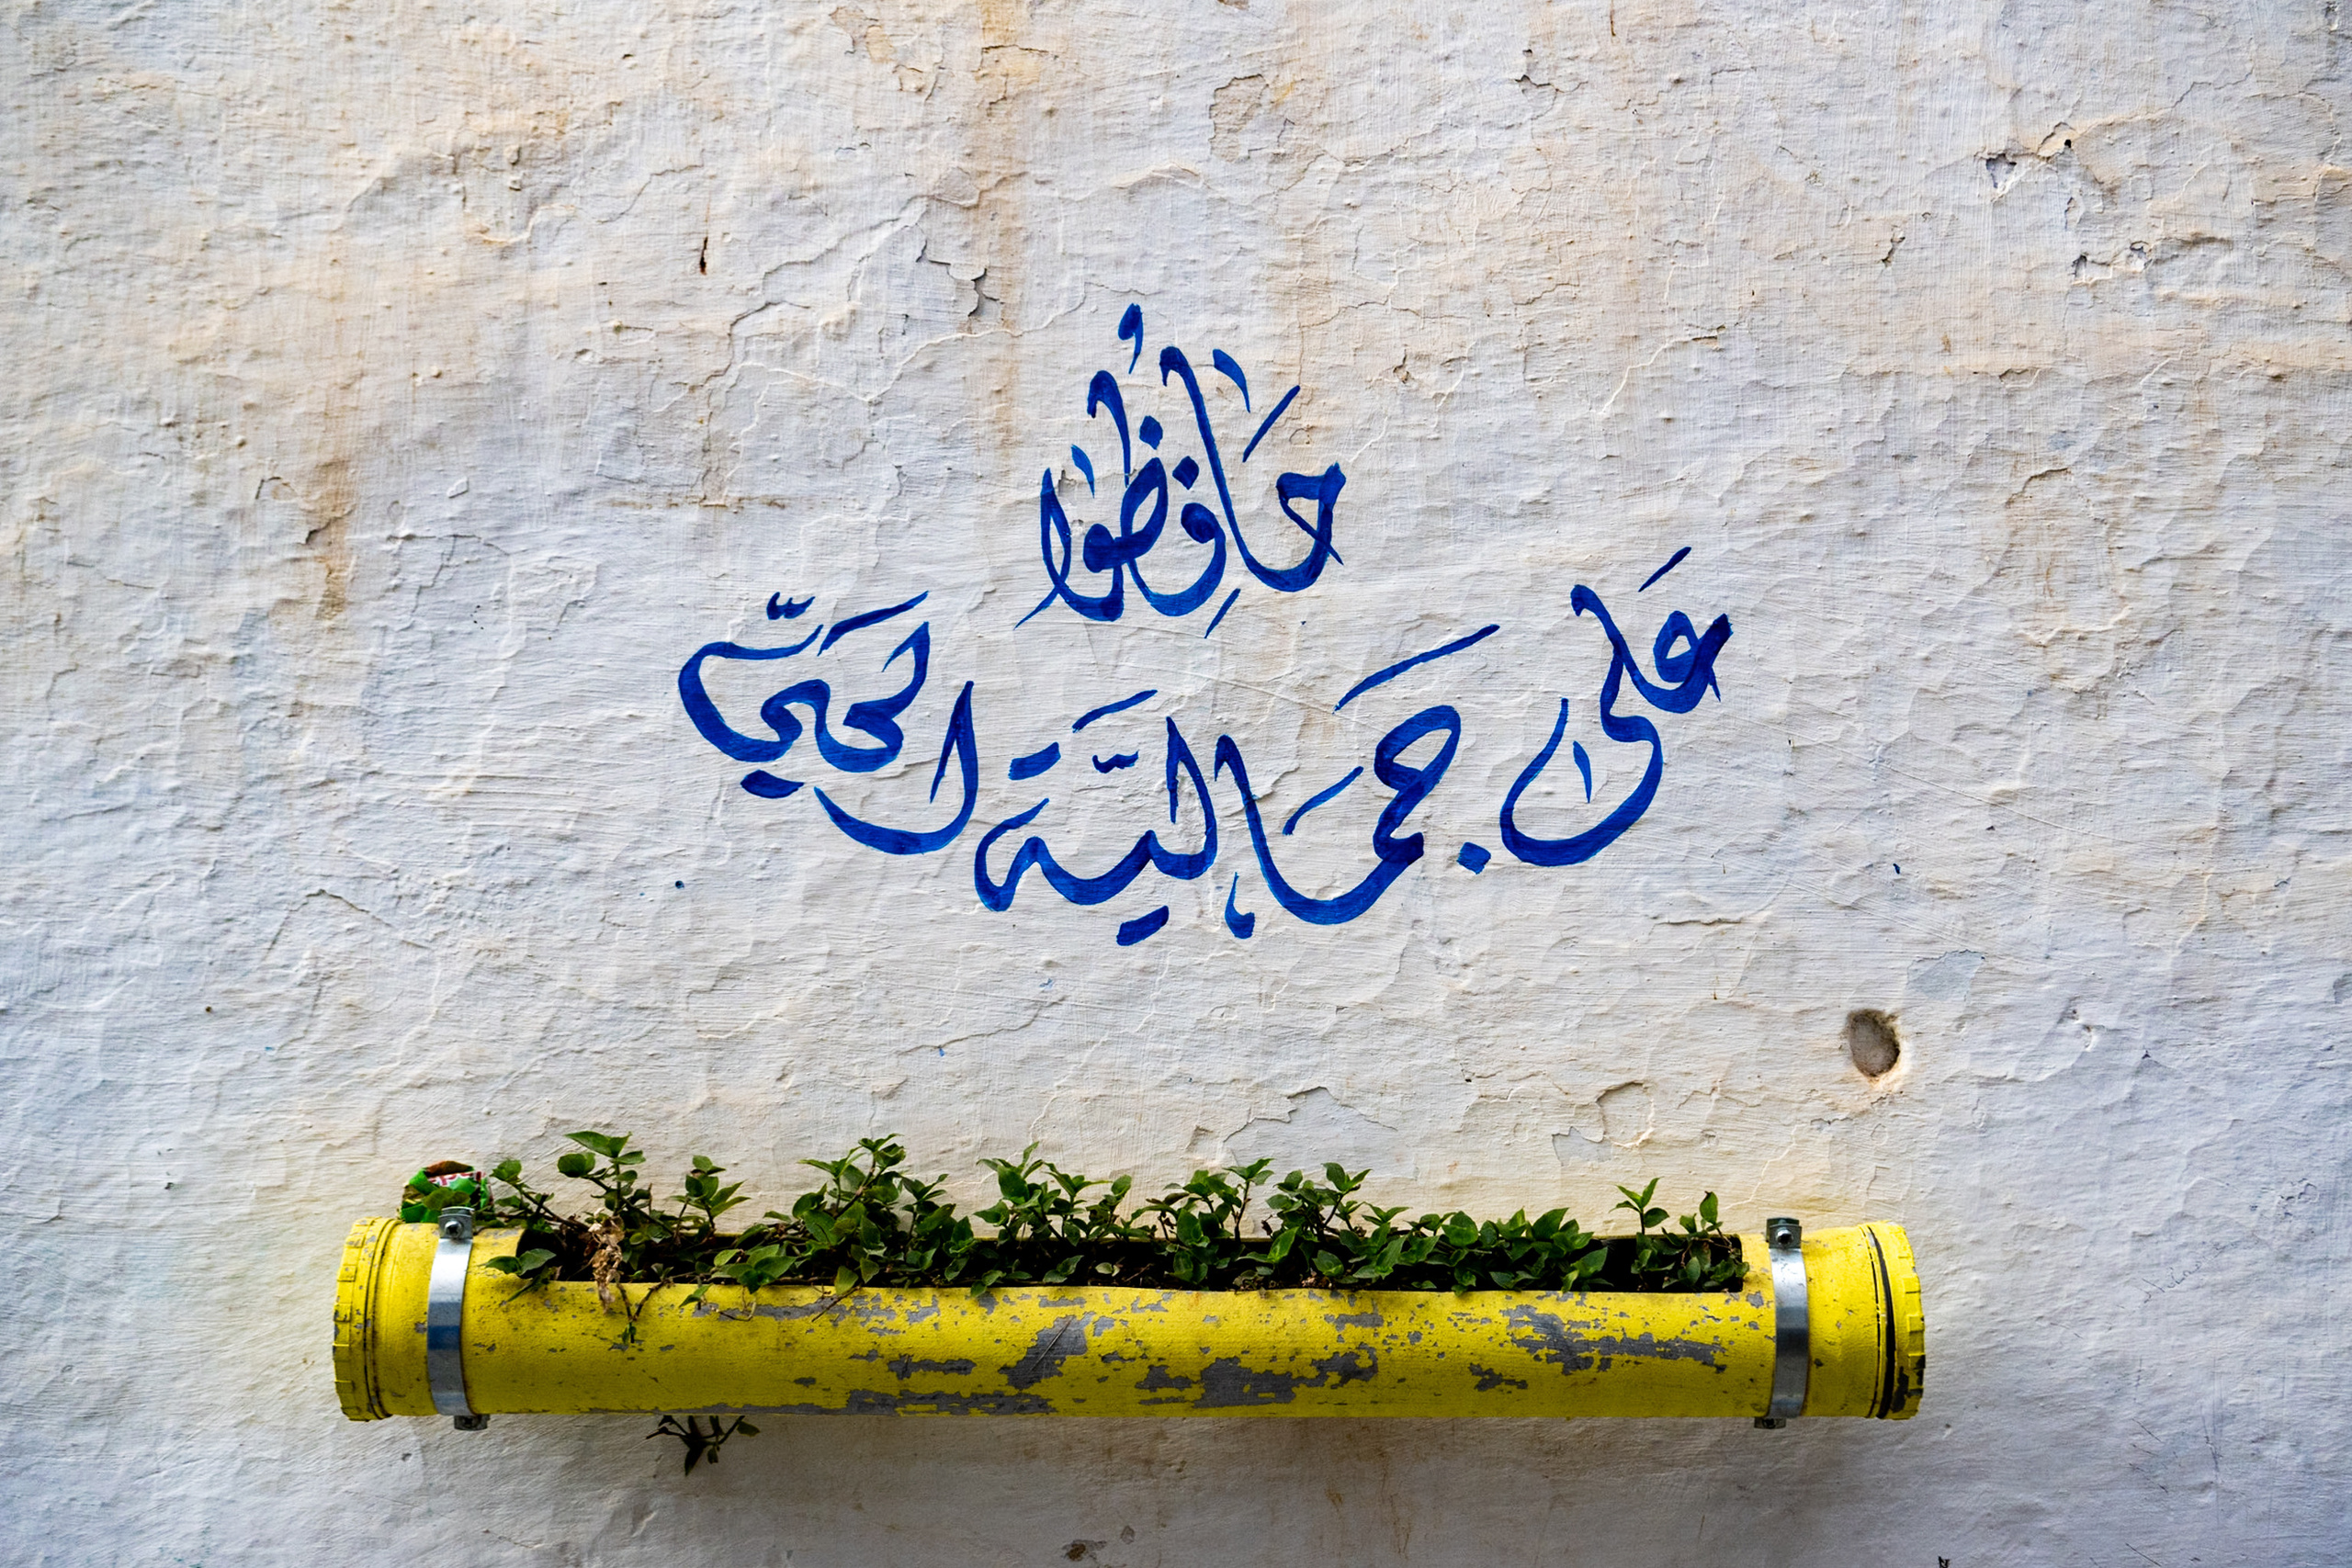 حَافِظُوا
عَلَى جَمَالِيَّةِ الحَيِّ